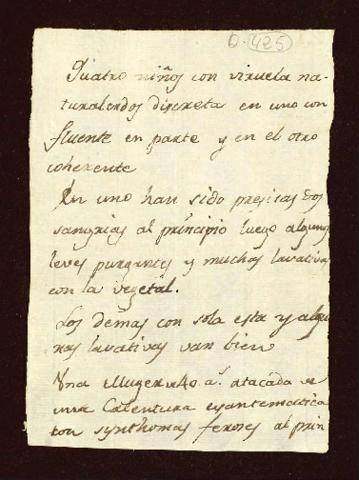 D-425
Quatro niños con viruela na-
tural en dos discreta en uno con
fluente en parte y en el otro
coherente
En uno han sido presisas dos
sangrias al principio luego algunos
leves purgantes y muchos lavativas
con la vegetal.
Los demas con sola esta y algu
nas lavativas van bien
Una Muger 40 a.s atacada de
una Calentura esantematica
con synthomas feroses al prin